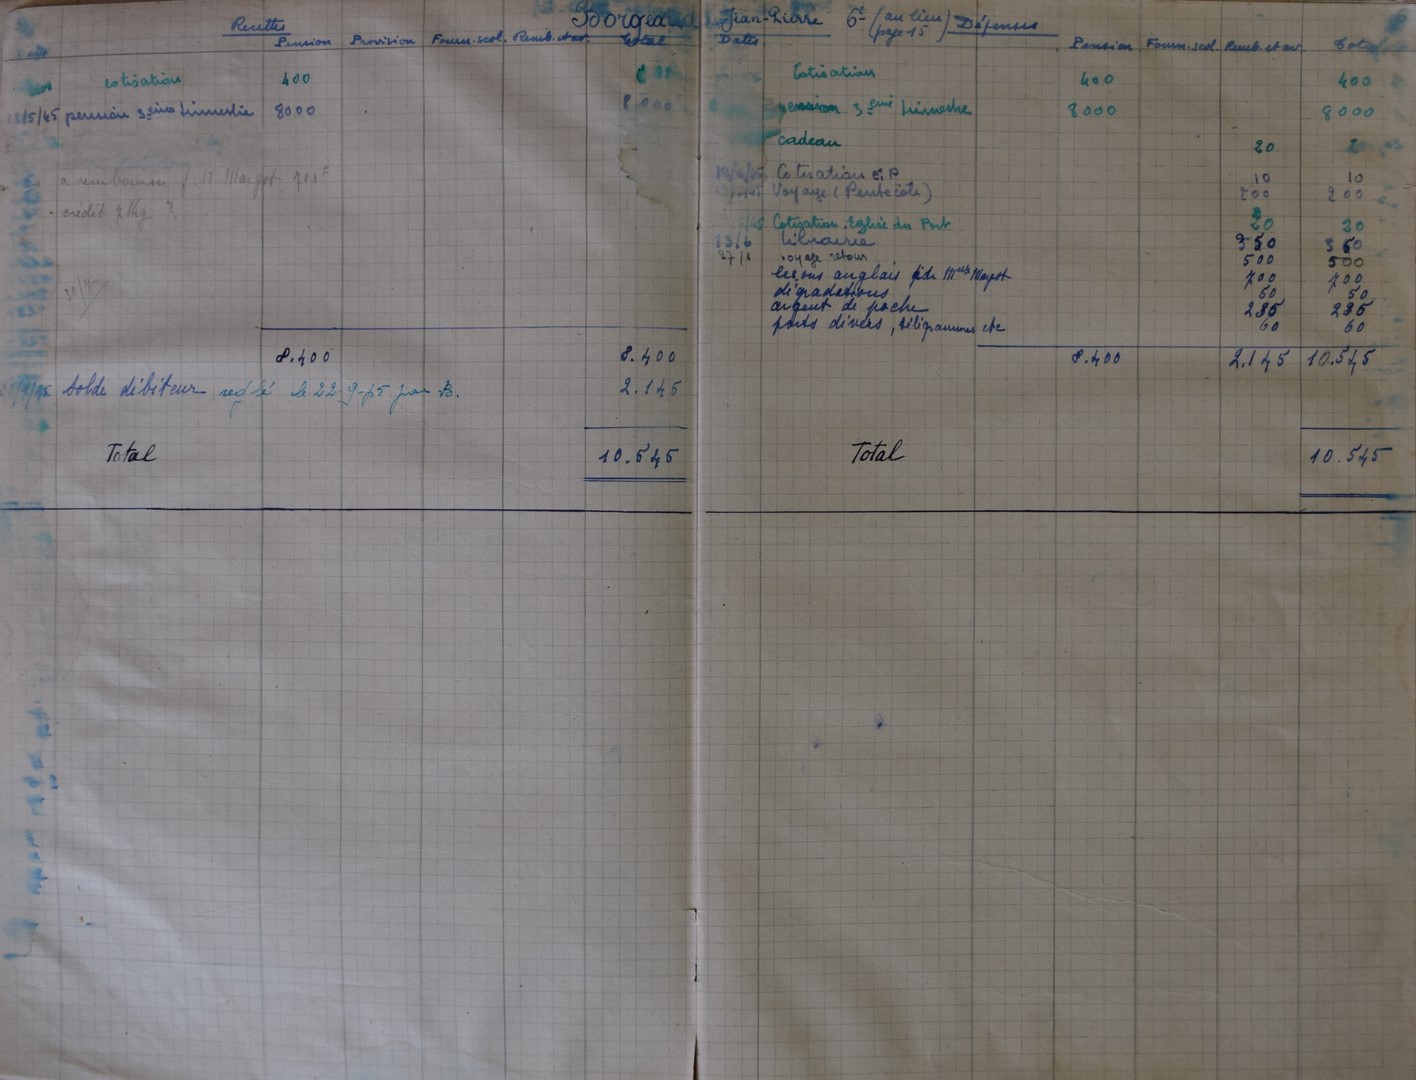 Recettes
Pension Provision Fourn. scol. Remb. et av. Total
cotisation 400
12/5/45 pension 3ème trimestre 8000 8000
a rembourser Margot 700F
crédit
8.400 8.400
Solde débiteur, reglé le 22-9-45 par B. 2.145
Total 10.545
Borgeaud Jean-Pierre 6e (au lieu page 15) Dépenses
Dates Pension Fourn. scol. Remb. et av. Total
Cotisation 400 400
pension 3ème trimestre 8000 8000
cadeau 20
Cotisation E.P 10 10
Voyage (Pentecôte) 200 200
Cotisation Eglise du Port 20 20
13/6 Librairie 350 350
27/6 voyage retour 500 500
leçons anglais p. de Melle Margot 700 700
dégradations 50 50
argent de poche 235 235
ports divers, télégrammes etc 60 60
8.400 2.145 10.545
Total 10.545